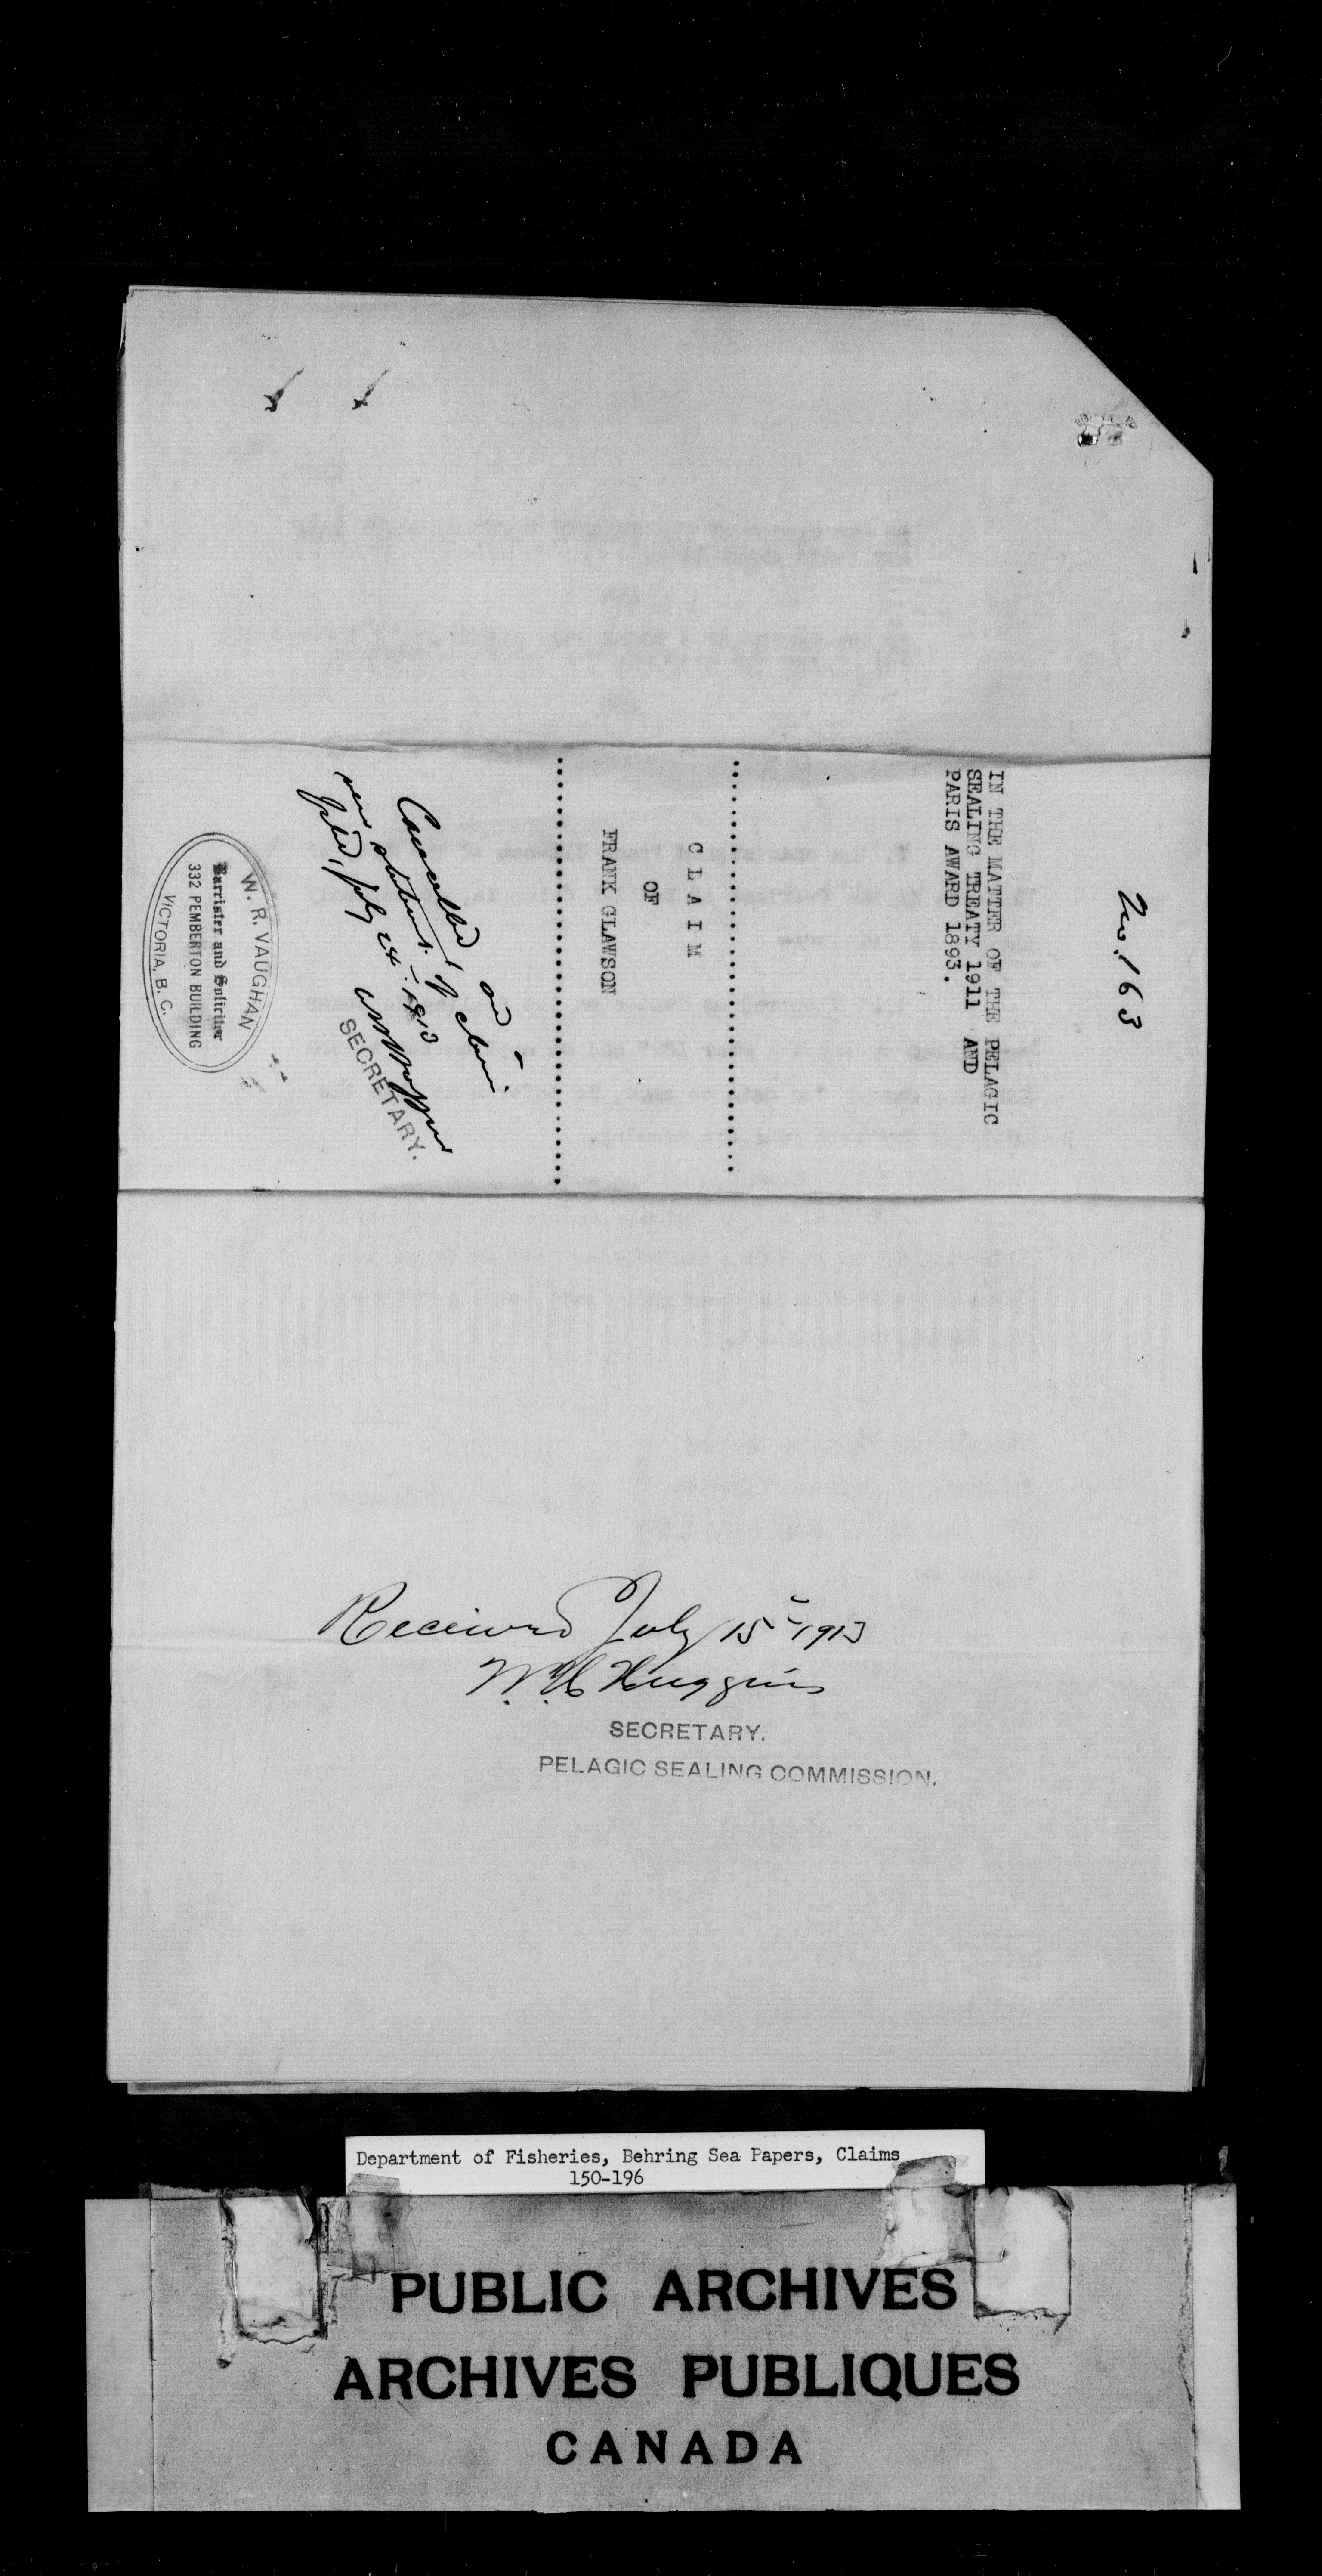 No. 163
IN THE MATTER OF THE PELAGIC
SEALING TREATY 1911 AND
PARIS AWARD 1893.
C L A I M
OF
FRANK GLAWSON
Cancelled and
new statement of claim
filed, July 24 - 1913
SECRETARY.
W. R. VAUGHAN
Barrister and Solicitor
332 PEMBERTON BUILDING
VICTORIA, B. C.
Received July 15 - 1913
W. H. Huggins
SECRETARY.
PELAGIC SEALING COMMISSION.
Department of Fisheries, Behring Sea Papers, Claims
150-196
PUBLIC ARCHIVES
ARCHIVES PUBLIQUES
CANADA